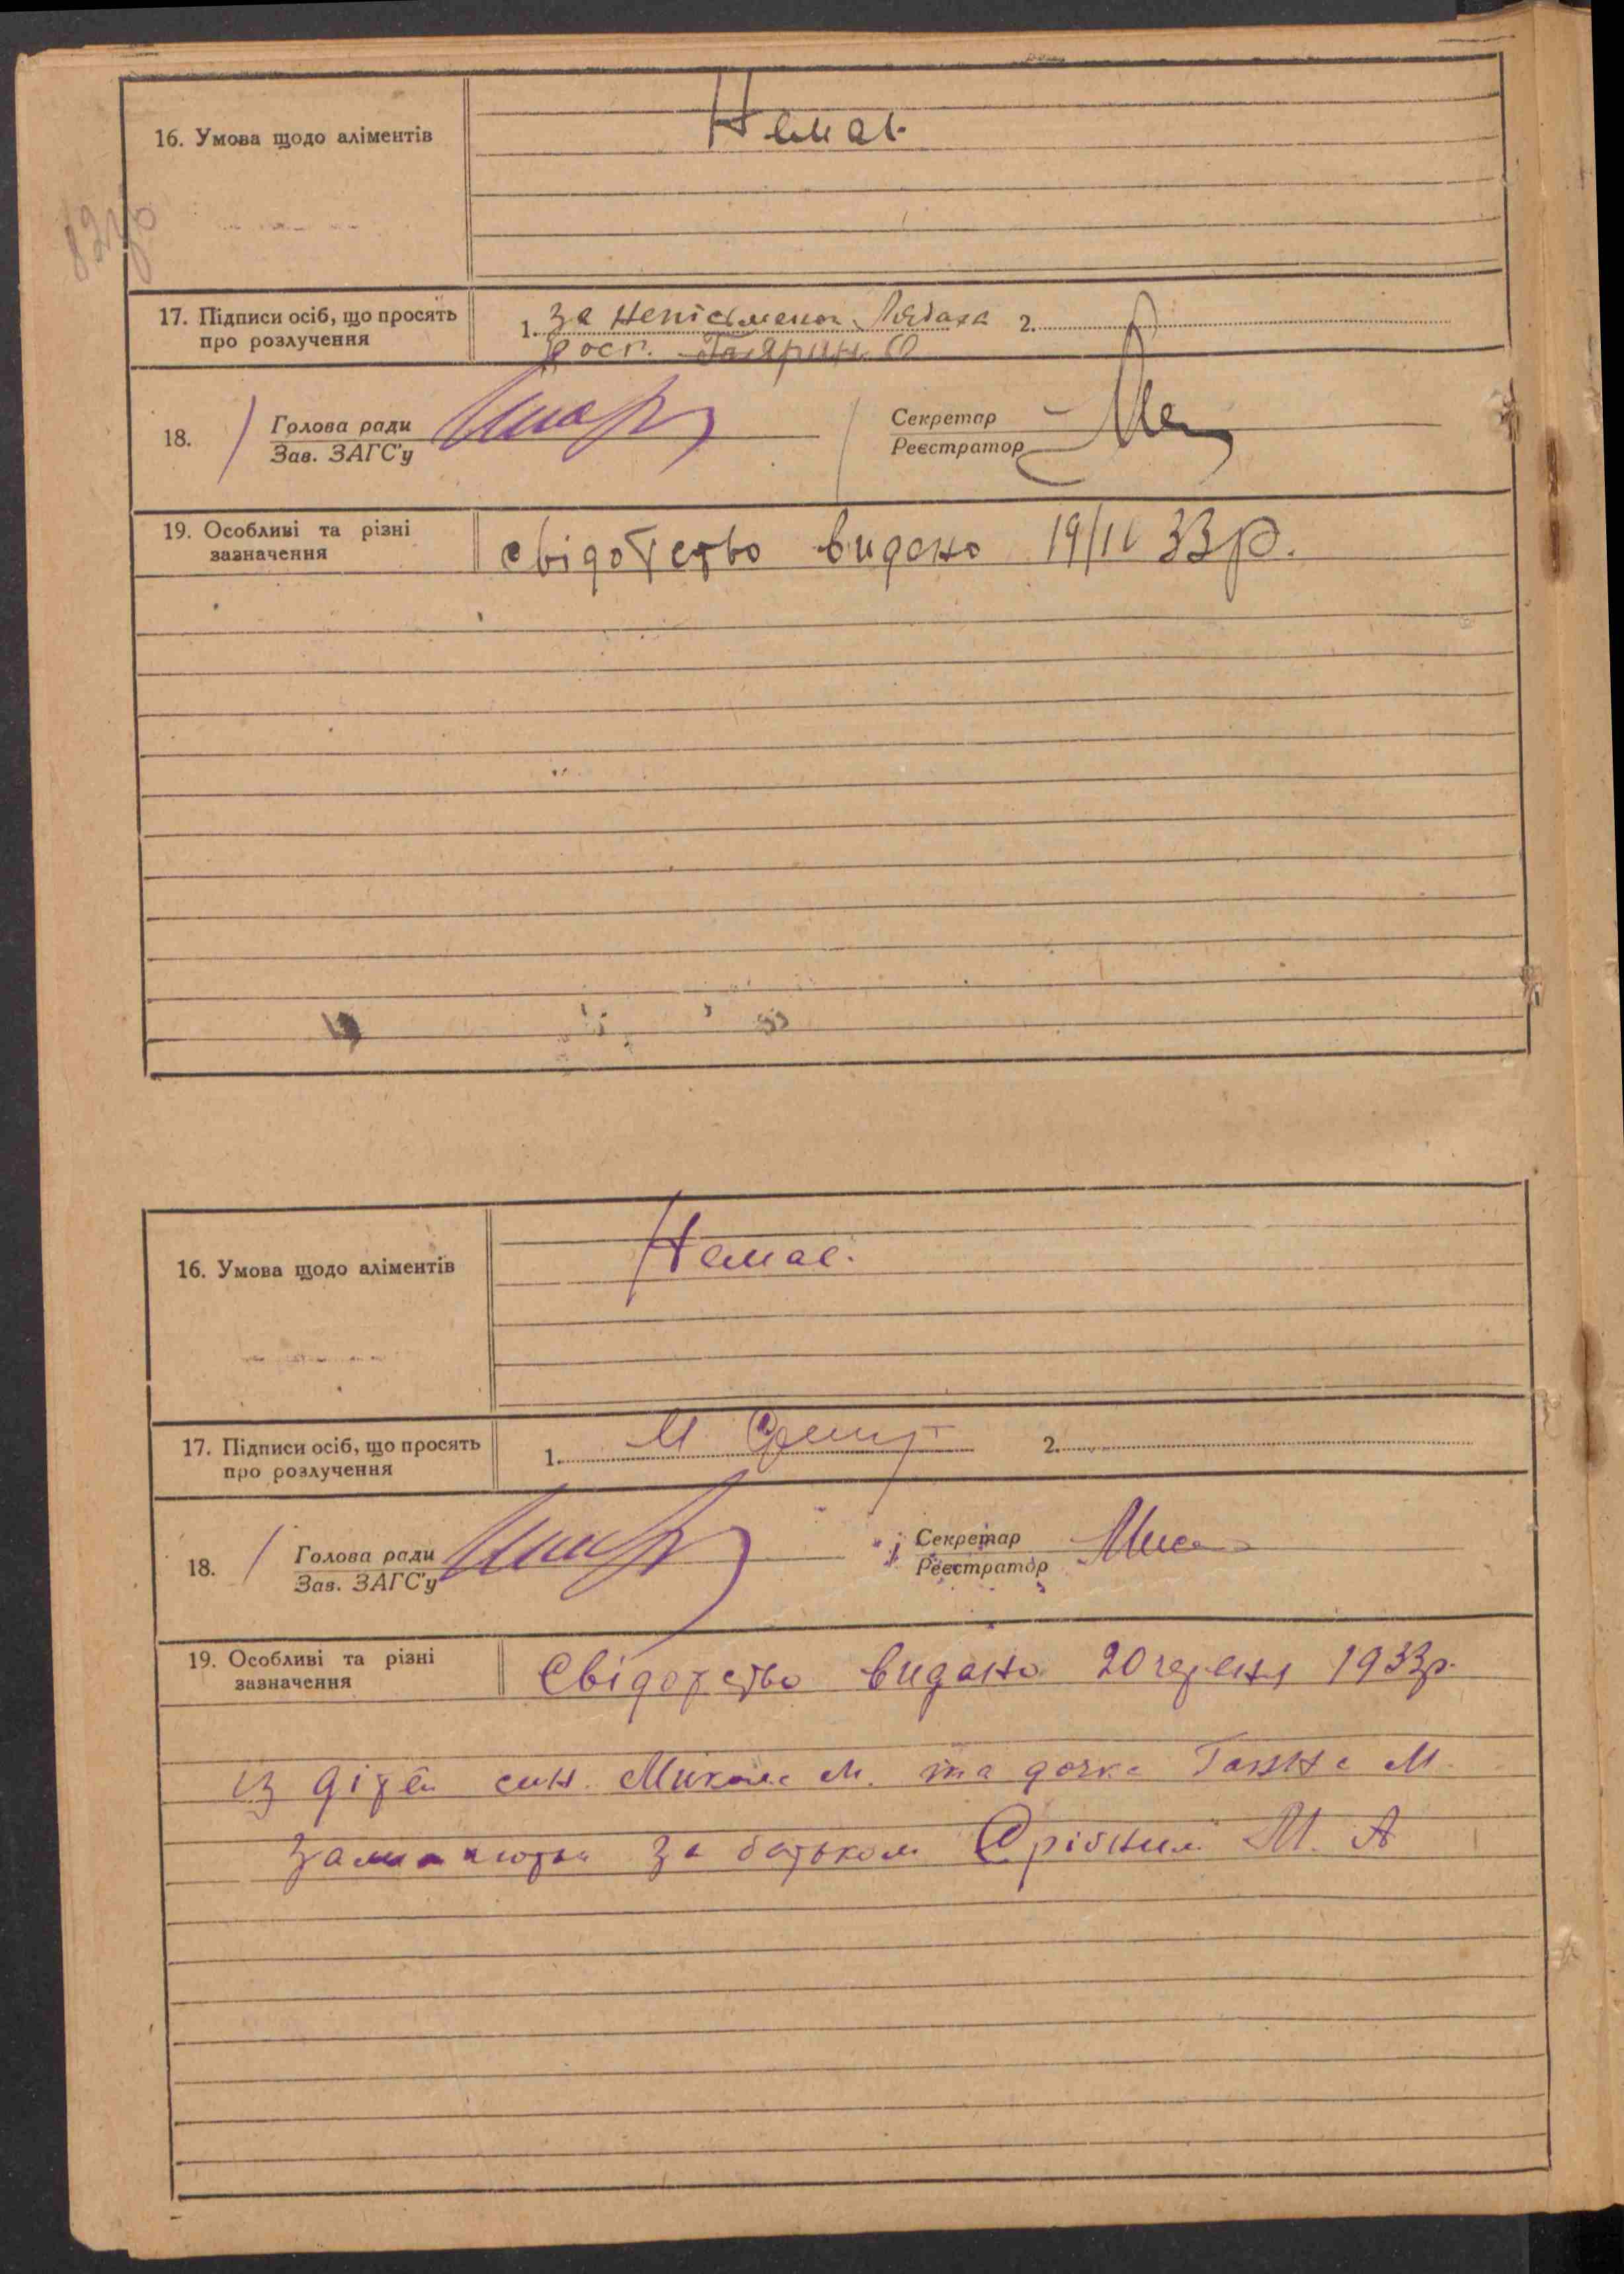 16. Умова щодо аліментів
Немає
17. Підписи осіб, що просять
про розлучення
1. За непісьменог
2.
18.
Голова ради
Зав. ЗАГС'у
Секретар
Реєстратор
19. Особливі та різні
зазначення
свідотство видано 19/IV 33 р.
16. Умова щодо аліментів
Немає.
17. Підписи осіб, що просять
про розлучення
1. М
2.
18.
Голова ради
Зав. ЗАГС'у
Секретар
Реєстратор
19. Особливі та різні
зазначення
Свідотство видано 20 червня 1933 р.
із дітей син Микола М. та дочка Ганна М.
за батьком М. А